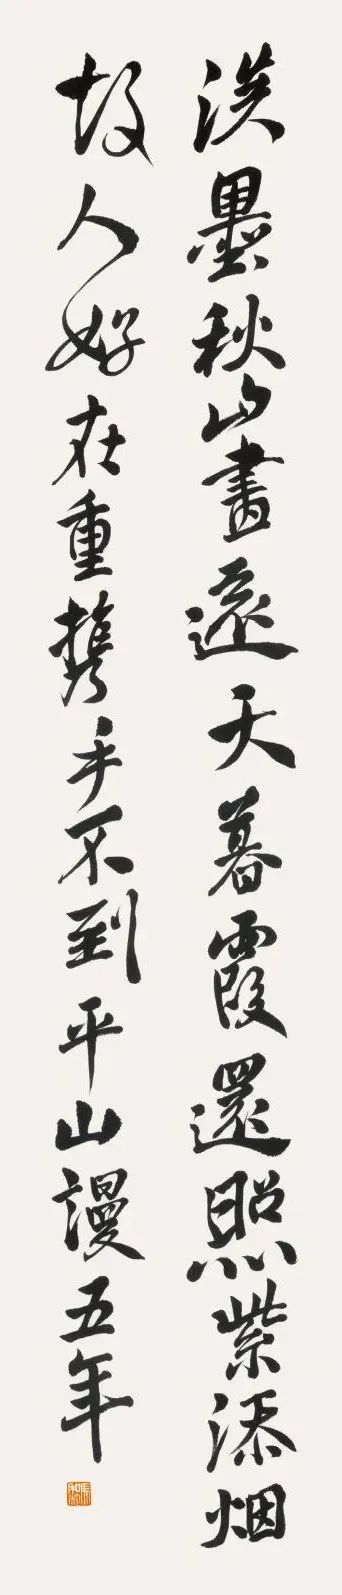 淡墨秋山畫遠天暮霞還照紫添烟
故人好在重携手不到平山謾五年